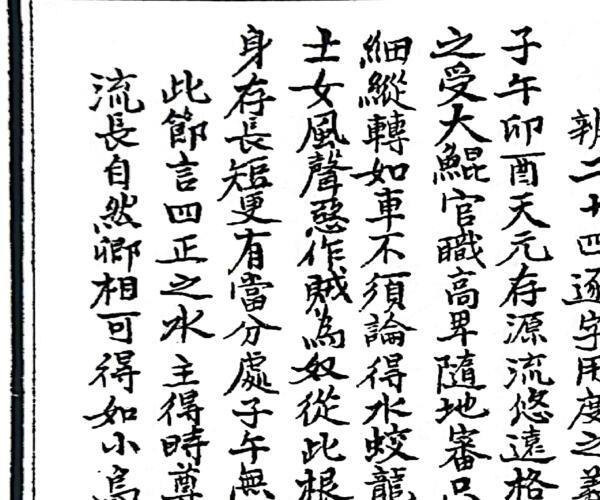 辨二十四逐字用度之義
子午卯酉天元存源流悠遠格
之受大鯤官職高卑隨地審只
細縱轉如車不須論得水蛟龍
士女風聲惡作賊為奴從此根
身存長短更有當分處子午無
此節言四正之水主得時尊
流長自然卿相可得如小為